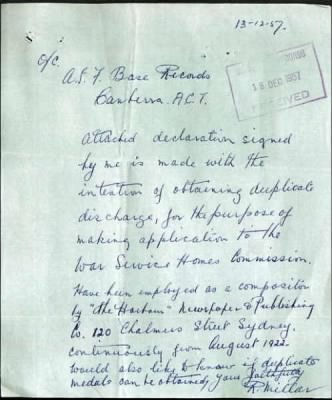 13-12-57.
O/C.
A.I.F. Base Records
Canberra. A.C.T.
18 DEC 1957
RECEIVED
Attached declaration signed
by me is made with the
intention of obtaining duplicate
discharge, for the purpose of
making application to the
War Service Homes Commission.
Have been employed as a compositor
by "The Harbour" Newspaper & Publishing
Co. 120 Chalmers Street Sydney.
continuously from August 1922.
would also like to know if duplicate
medals can be obtained, yours faithfully
R. Millar